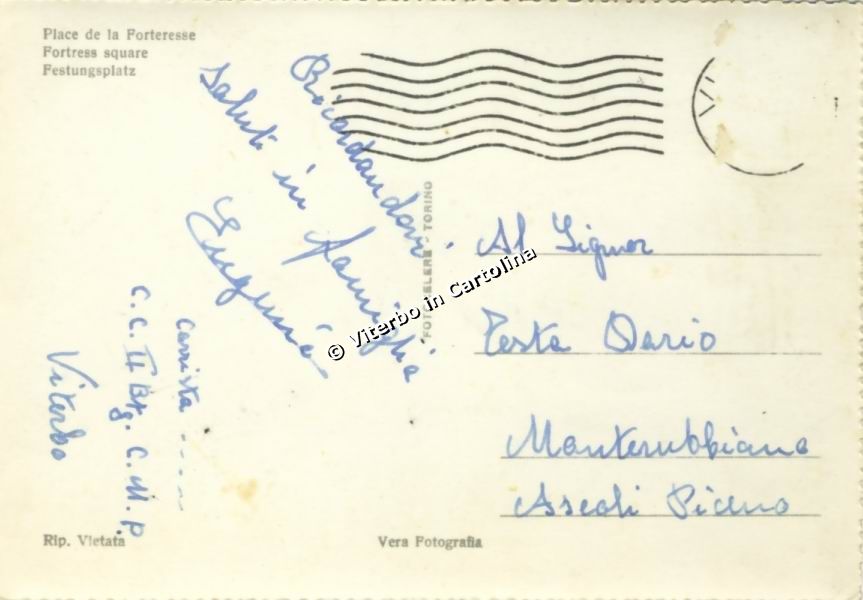 Place de la Forteresse
Fortress square
Festungsplatz
Ricordandovi
saluti in famiglia
FOTOCELERE - TORINO
© Viterbo in Cartolina
Al Signor
Testa Dario
Monterubbiano
Ascoli Piceno
Carrista ....
C.C. II Btg. C.M.P.
Viterbo
Rip. Vietata
Vera Fotografia